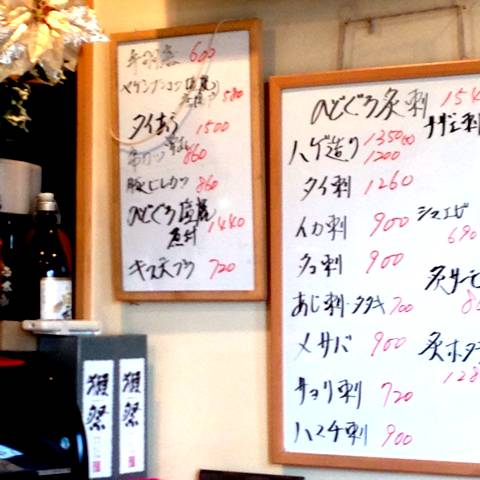 600
580
タイあら 1500
860
豚ヒレカツ 860
のどぐろ塩焼 1440
煮付
キス天プラ 720
のどぐろ炙刺 154
サザエ刺
ハゲ造り 1350
1200
タイ刺 1260
イカ刺 900
シマエビ
690
タコ刺 900
あじ刺・タタキ 700
炙サーモ
メサバ 900
炙ホタテ
128
サヨリ刺 720
ハマチ刺 900
獺祭
獺祭